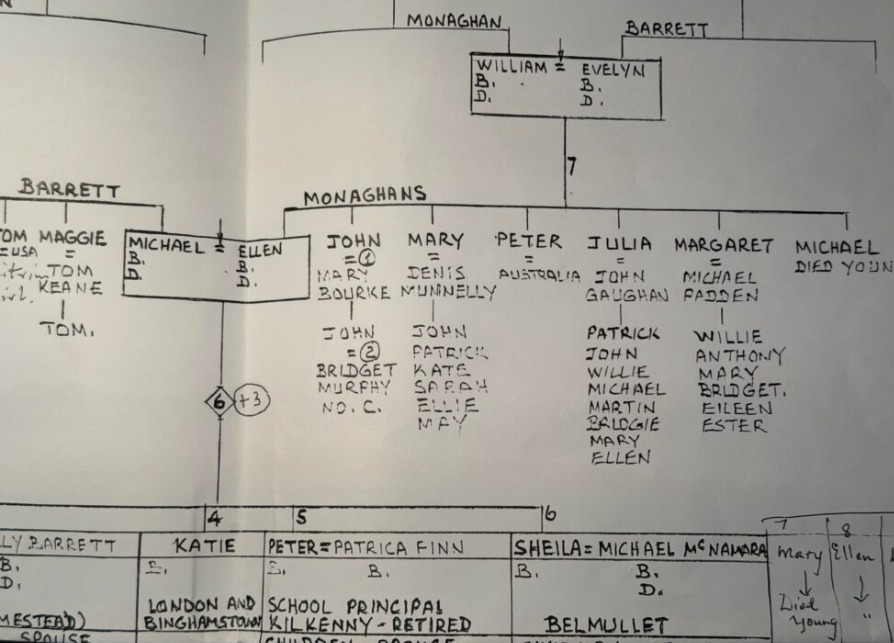 MONAGHAN
BARRETT
WILLIAM = EVELYN
B. B.
D. D.
7
BARRETT
MONAGHANS
TOM
= USA
MAGGIE
=
TOM
KEANE
TOM.
MICHAEL = ELLEN
B. B.
D. D.
JOHN
= ①
MARY
BOURKE
JOHN
= ②
BRIDGET
MURPHY
NO. C.
MARY
=
DENIS
MUNNELLY
JOHN
PATRICK
KATE
SARAH
ELLIE
MAY
PETER
=
AUSTRALIA
JULIA
=
JOHN
GAUGHAN
PATRICK
JOHN
WILLIE
MICHAEL
MARTIN
BRIDGIE
MARY
ELLEN
MARGARET
=
MICHAEL
PADDEN
WILLIE
ANTHONY
MARY
BRIDGET.
EILEEN
ESTER
MICHAEL
DIED YOUN
6 +3
4 5 6 7 8
LY BARRETT
B.
D.
MESTEAD)
SPOUSE
KATIE
B.
LONDON AND
BINGHAMSTOWN
PETER = PATRICA FINN
B. B.
SCHOOL PRINCIPAL
KILKENNY - RETIRED
SHEILA = MICHAEL McNAMARA
B. B.
D.
BELMULLET
Mary
Died
young
Ellen
"